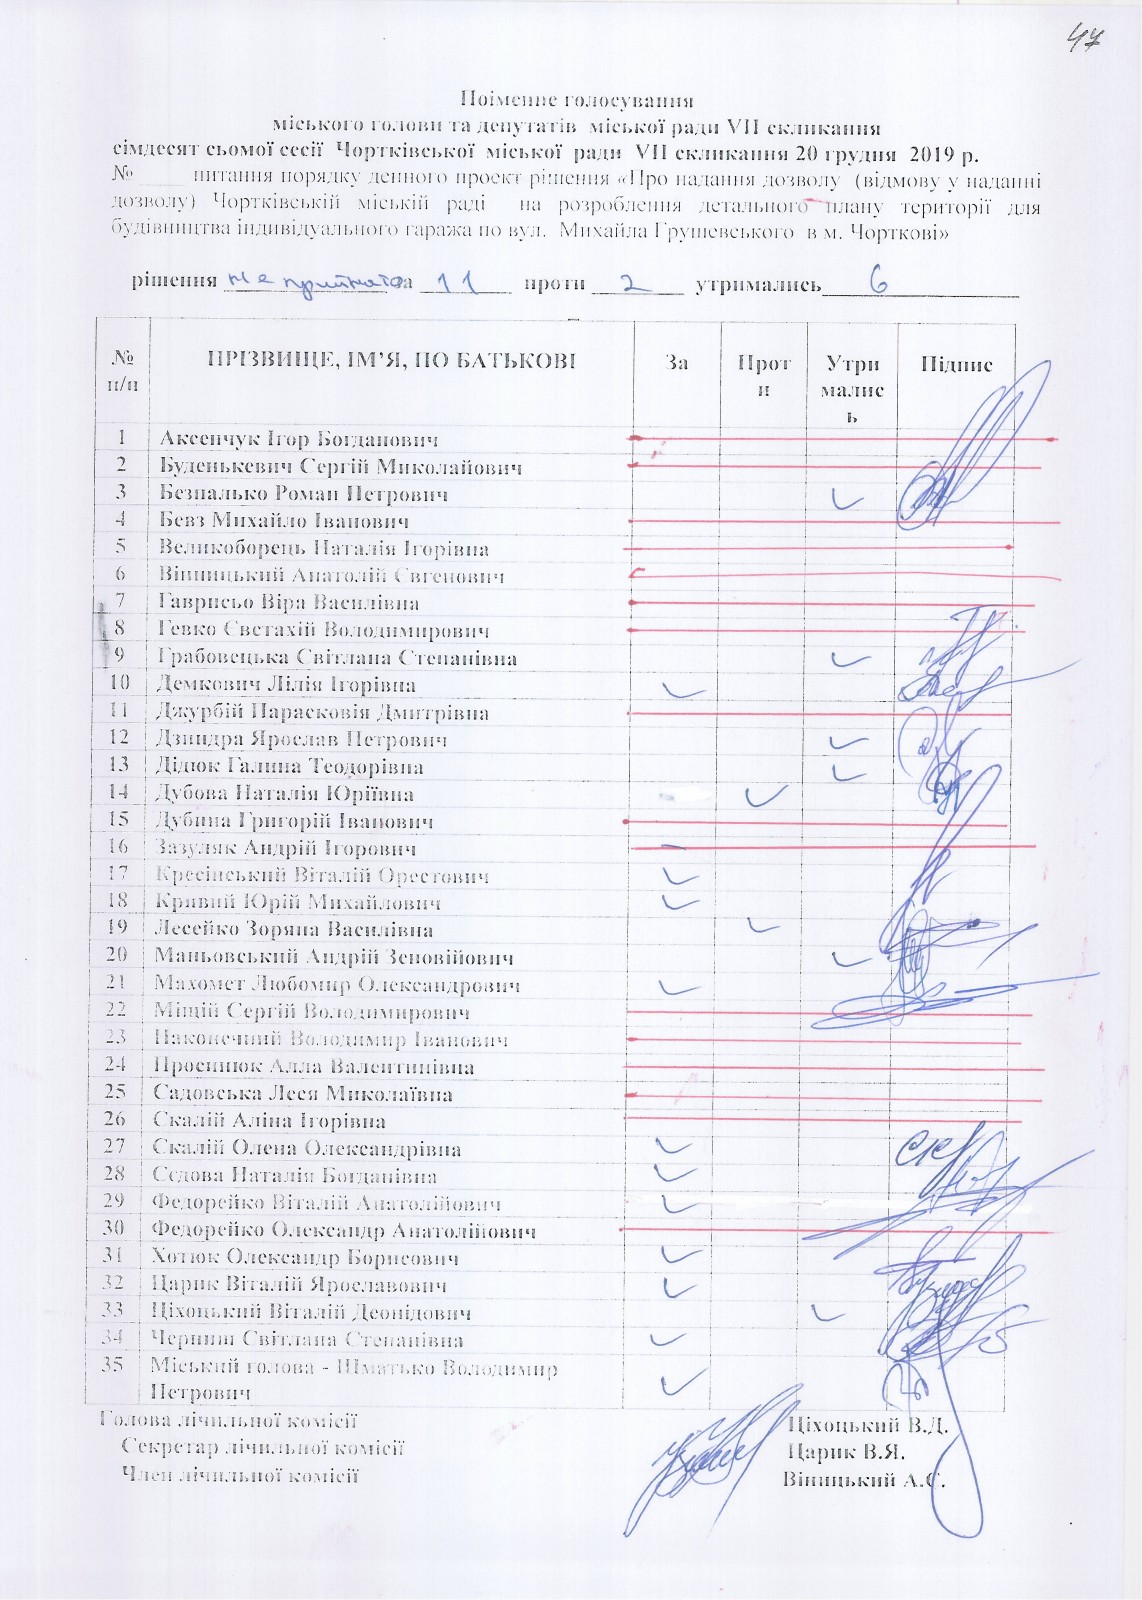 47
Поіменне голосування
міського голови та депутатів міської ради VII скликання
сімдесят сьомої сесії Чортківської міської ради VII скликання 20 грудня 2019 р.
№ ____ питання порядку денного проект рішення «Про надання дозволу (відмову у наданні
дозволу) Чортківській міській раді на розроблення детального плану території для
будівництва індивідуального гаража по вул. Михайла Грушевського в м. Чорткові»
рішення не прийнято за 11 проти 2 утримались 6
№ п/п ПРІЗВИЩЕ, ІМ'Я, ПО БАТЬКОВІ За Проти Утримались Підпис
1 Аксенчук Ігор Богданович
2 Буденькевич Сергій Миколайович
3 Безпалько Роман Петрович
4 Бевз Михайло Іванович
5 Великоборець Наталія Ігорівна
6 Вінницький Анатолій Євгенович
7 Гаврисьо Віра Василівна
8 Гевко Євстахій Володимирович
9 Грабовецька Світлана Степанівна
10 Демкович Лілія Ігорівна
11 Джурбій Парасковія Дмитрівна
12 Дзиндра Ярослав Петрович
13 Дідюк Галина Теодорівна
14 Дубова Наталія Юріївна
15 Дубина Григорій Іванович
16 Зазуляк Андрій Ігорович
17 Кресінський Віталій Орестович
18 Кривий Юрій Михайлович
19 Лесейко Зоряна Василівна
20 Маньовський Андрій Зеновійович
21 Махомет Любомир Олександрович
22 Міщій Сергій Володимирович
23 Наконечний Володимир Іванович
24 Просинюк Алла Валентинівна
25 Садовська Леся Миколаївна
26 Скалій Аліна Ігорівна
27 Скалій Олена Олександрівна
28 Сєдова Наталія Богданівна
29 Федорейко Віталій Анатолійович
30 Федорейко Олександр Анатолійович
31 Хотюк Олександр Борисович
32 Царик Віталій Ярославович
33 Ціхоцький Віталій Деонідович
34 Черниш Світлана Степанівна
35 Міський голова - Шматько Володимир
Петрович
Голова лічильної комісії Ціхоцький В.Д.
Секретар лічильної комісії Царик В.Я.
Член лічильної комісії Віницький А.Є.